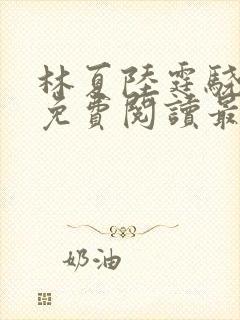 林夏陸霆驍
免費閱讀最
奶油